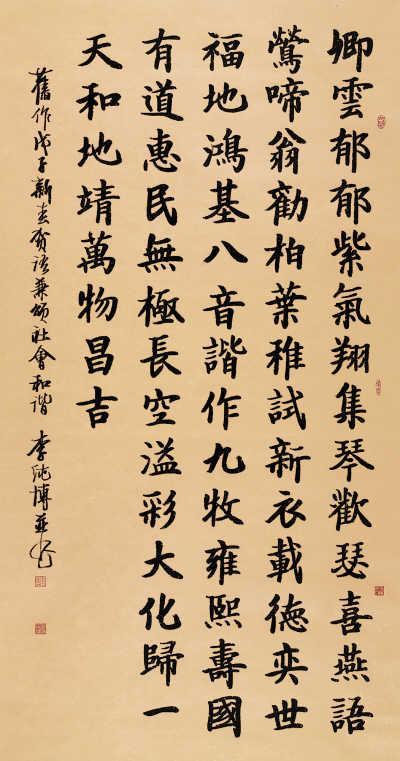 卿雲郁郁紫氣翔集琴歡瑟喜燕語
鶯啼翁勸柏葉稚試新衣載德奕世
福地鴻基八音諧作九牧雍熙壽國
有道惠民無極長空溢彩大化歸一
天和地靖萬物昌吉
舊作戊子新春賀語兼頌社會和諧 李純博並書